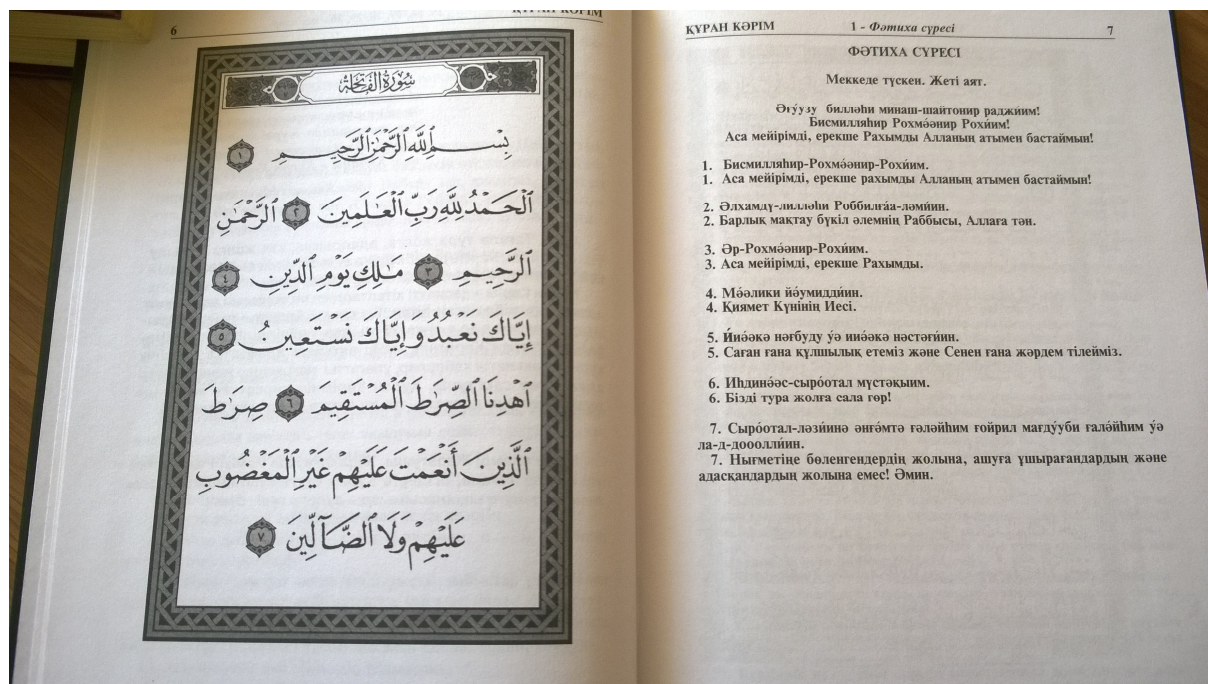 6
ҚҰРАН КӘРІМ
سُورَةُ الْفَاتِحَةِ
بِسْمِ ٱللَّهِ ٱلرَّحْمَٰنِ ٱلرَّحِيمِ ١
ٱلْحَمْدُ لِلَّهِ رَبِّ ٱلْعَٰلَمِينَ ٢ ٱلرَّحْمَٰنِ
ٱلرَّحِيمِ ٣ مَٰلِكِ يَوْمِ ٱلدِّينِ ٤
إِيَّاكَ نَعْبُدُ وَإِيَّاكَ نَسْتَعِينُ ٥
ٱهْدِنَا ٱلصِّرَٰطَ ٱلْمُسْتَقِيمَ ٦ صِرَٰطَ
ٱلَّذِينَ أَنْعَمْتَ عَلَيْهِمْ غَيْرِ ٱلْمَغْضُوبِ
عَلَيْهِمْ وَلَا ٱلضَّآلِّينَ ٧
ҚҰРАН КӘРІМ 1 - Фәтиха сүресі 7
ФӘТИХА СҮРЕСІ
Меккеде түскен. Жеті аят.
Әғу́узу билләһи минаш-шайтонир раджи́им!
Бисмилляһир Рохмә́әнир Рохи́им!
Аса мейірімді, ерекше Рахымды Алланың атымен бастаймын!
1. Бисмилляһир-Рохмә́әнир-Рохи́им.
1. Аса мейірімді, ерекше рахымды Алланың атымен бастаймын!
2. Әлхамду́-лилләһи Роббилға́а-ләми́ин.
2. Барлық мақтау бүкіл әлемнің Раббысы, Аллаға тән.
3. Әр-Рохмә́әнир-Рохи́им.
3. Аса мейірімді, ерекше Рахымды.
4. Мә́әлики йә́умидди́ин.
4. Қиямет Күнінің Иесі.
5. И́йнә́әкә нәғбуду у́ә ийнә́әкә нәстәғи́ин.
5. Саған ғана құлшылық етеміз және Сенен ғана жәрдем тілейміз.
6. Иһдинә́әс-сыро́отал мүстәқыим.
6. Бізді тура жолға сала гөр!
7. Сыро́отал-ләзи́инә әнғә́мтә ғәләйһим ғойрил мағду́уби ғалә́йһим у́ә
ла-д-дооолли́ин.
7. Нығметіңе бөленгендердің жолына, ашуға ұшырағандардың және
адасқандардың жолына емес! Әмин.